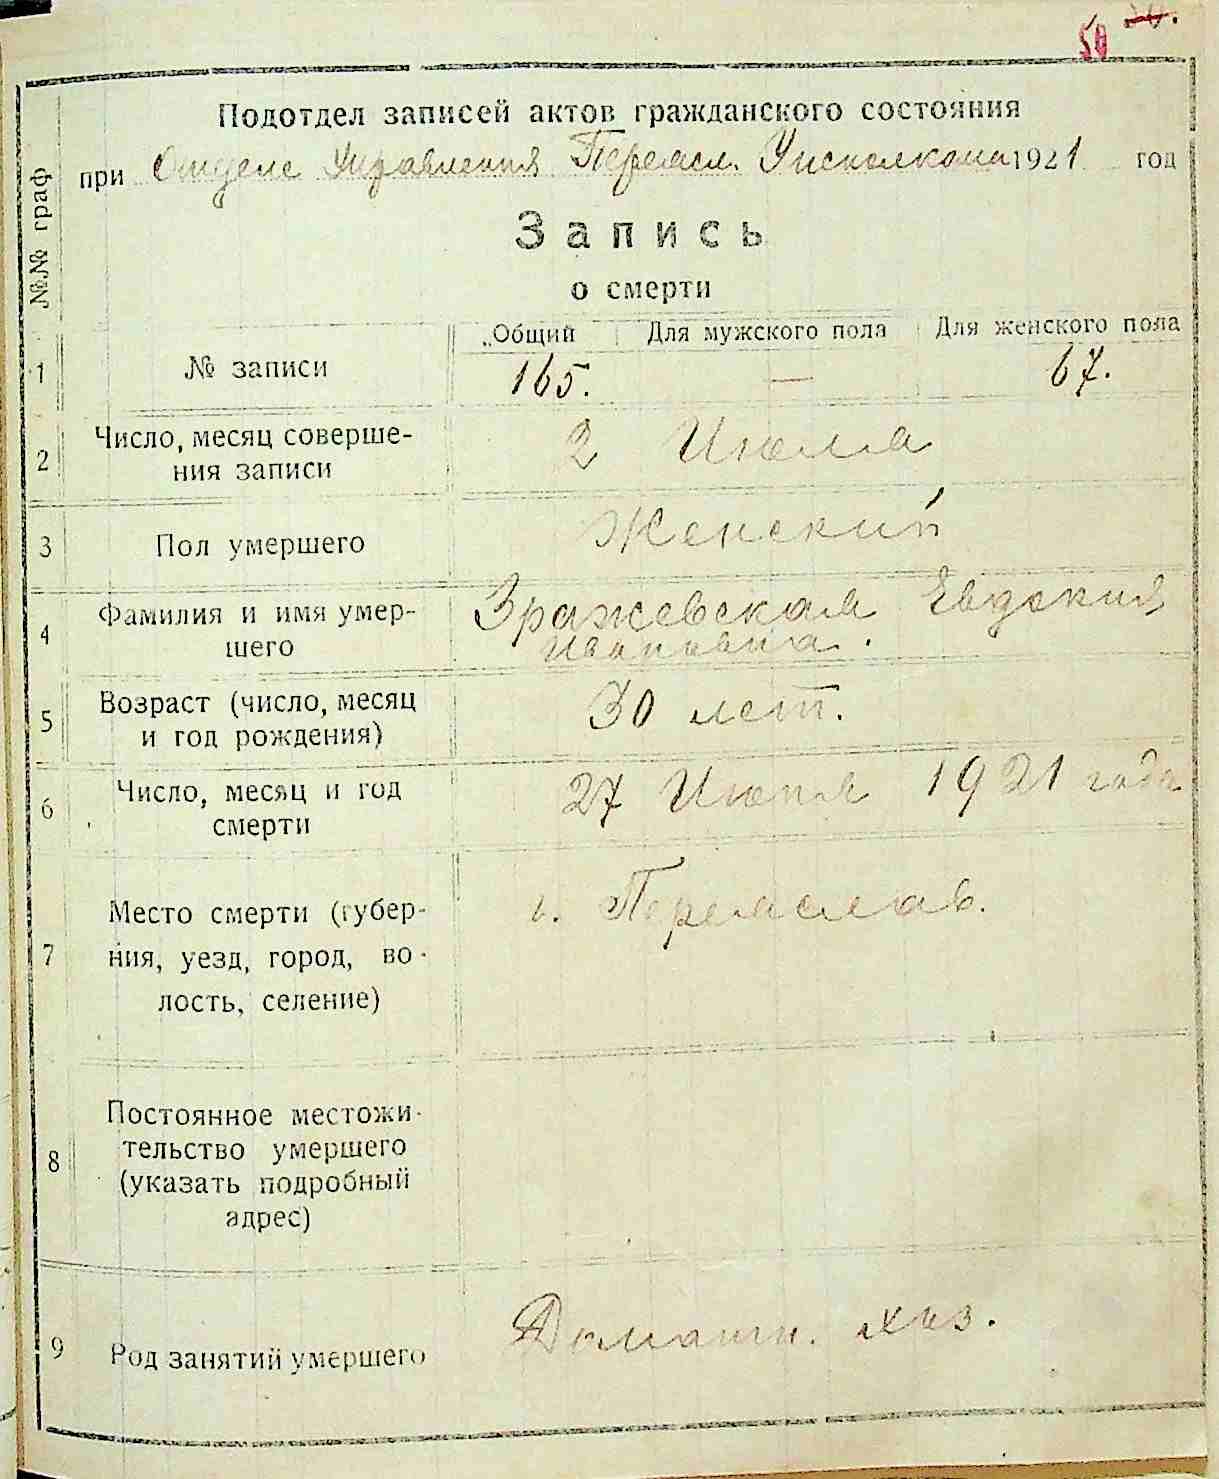 50 50.
Подотдел записей актов гражданского состояния
при Отделе Управления Переясл. Уисполкома 1921 год
№№ граф
Запись
о смерти
Общий Для мужского пола Для женского пола
1 № записи 165. — 67.
2 Число, месяц соверше-
ния записи 2 Июля
3 Пол умершего Женский
4 Фамилия и имя умер-
шего Зражевская Евдокия
Ивановна.
5 Возраст (число, месяц
и год рождения) 30 лет.
6 Число, месяц и год
смерти 27 Июня 1921 года
7 Место смерти (губер-
ния, уезд, город, во-
лость, селение) г. Переяслав.
8 Постоянное местожи-
тельство умершего
(указать подробный
адрес)
9 Род занятий умершего Домашн. хоз.